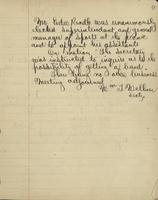 9
Mr. Peter Rindt was unanimously
elected Superintendent and general
manager of sports at the picnic
and to appoint his assistants
By motion The Secretary
was instructed to inquire as to the
possibility of getting a band.
There being no other business
Meeting adjourned
Wm. J.
Secty